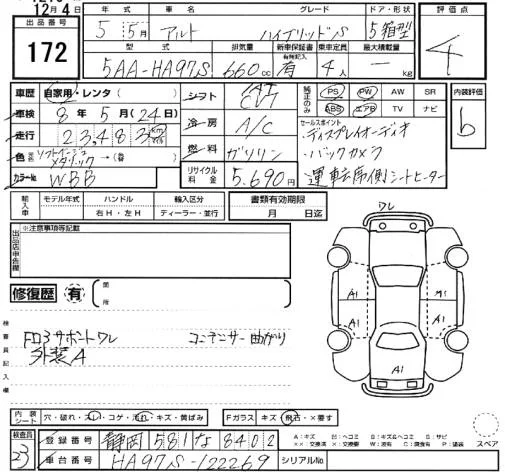 12月4日
出品番号
172
年式 車名 グレード ドア・形状
5年5月 アルト ハイブリッドS 5 箱型
型式 排気量 新車保証書 有無記入 乗車定員 最大積載量
5AA-HA97S 660cc 有 4人 kg
評価点
4
車歴 自家用・レンタ( )
車検 8年5月(24日)
走行 23,483 km
色 ソフトベージュメタリック →(替)
カラーNo. WBB
シフト AT CVT
冷房 A/C
燃料 ガソリン
リサイクル料金 5,690円
純正のみ PS PW AW SR
ABS エアB TV ナビ
内装評価
b
セールスポイント
・ディスプレイオーディオ
・バックカメラ
・運転席側シートヒーター
輸入車 モデル年式 ハンドル 輸入区分
右H・左H ディーラー・並行
書類有効期限
月 日迄
出品店申告欄
※注意事項等記載
修復歴 有 箇所
検査員記入欄
FロΓサポートワレ コンデンサー曲がり
外装A
ワレ
A1
A1
A1
A1
A1
内装シート 穴・破れ・スレ・コゲ・汚れ・キズ・黄ばみ
Fガラス キズ・飛石・×要す
検査員
23
登録番号 静岡 581 な 8402
車台番号 HA97S-122269
シリアルNo.
A:キズ U:ヘコミ B:キズ&ヘコミ S:サビ
××:交換済 X:要交換 W:波有 C:腐食有 P:塗装
スペア